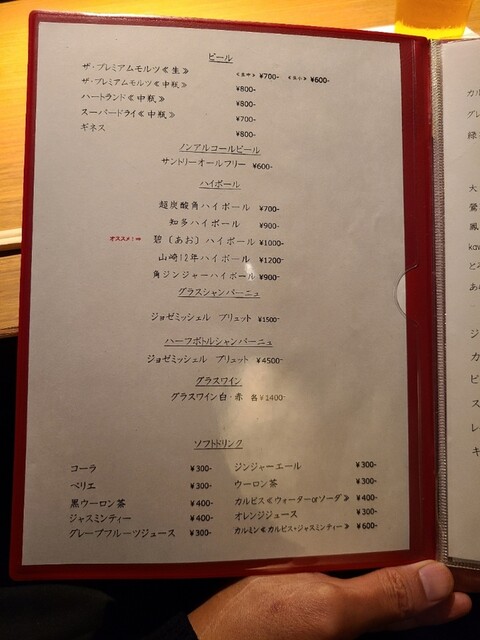 ビール
ザ・プレミアムモルツ≪生≫ ≪生中≫ ¥700- ≪生小≫ ¥600-
ザ・プレミアムモルツ≪中瓶≫ ¥800-
ハートランド≪中瓶≫ ¥800-
スーパードライ≪中瓶≫ ¥700-
ギネス ¥800-
ノンアルコールビール
サントリーオールフリー ¥600-
ハイボール
超炭酸角ハイボール ¥700-
知多ハイボール ¥900-
オススメ!⇒ 碧〔あお〕ハイボール ¥1000-
山崎12年ハイボール ¥1200-
角ジンジャーハイボール ¥900-
グラスシャンパーニュ
ジョゼミッシェル ブリュット ¥1500-
ハーフボトルシャンパーニュ
ジョゼミッシェル ブリュット ¥4500-
グラスワイン
グラスワイン白・赤 各¥1400-
ソフトドリンク
コーラ ¥300- ジンジャーエール ¥300-
ペリエ ¥300- ウーロン茶 ¥300-
黒ウーロン茶 ¥400- カルピス≪ウォーターorソーダ≫ ¥400-
ジャスミンティー ¥400- オレンジジュース ¥300-
グレープフルーツジュース ¥300- カルミン≪カルピス・ジャスミンティー≫ ¥600-
カル
グレ
緑
大
鶯
鳳
kaw
とろ
あ
ジ
カ
ピ
ス
レ
キ